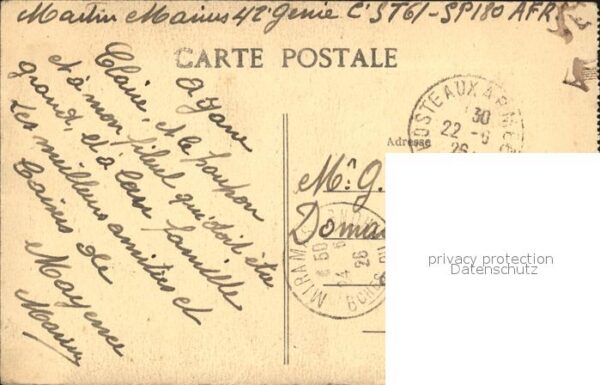 Martin Marius 42e Genie Cie ST61-SP180 AFR
CARTE POSTALE
a Jane
Claire, et le poupon
et à mon filleul qui doit être
grand, et à leur famille
Les meilleurs amitiés et
Baisers de
Mayence
Marius
Adresse
POSTE AUX ARMEES
30
22 -6
26
Mr G.
Domai
MIRAMAS
50
24 6
26
BCHES DU
privacy protection
Datenschutz